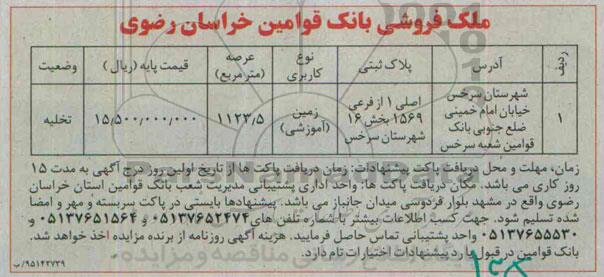 ملک فروشی بانک قوامین خراسان رضوی
ردیف آدرس پلاک ثبتی نوع کاربری عرصه (مترمربع) قیمت پایه (ریال) وضعیت
۱ شهرستان سرخس خیابان امام خمینی ضلع جنوبی بانک قوامین شعبه سرخس اصلی ۱ از فرعی ۱۵۶۹ بخش ۱۶ شهرستان سرخس زمین (آموزشی) ۱۱۲۳/۵ ۱۵,۵۰۰,۰۰۰,۰۰۰ تخلیه
زمان، مهلت و محل دریافت پاکت پیشنهادات: زمان دریافت پاکت ها از تاریخ اولین روز درج آگهی به مدت ۱۵
روز کاری می باشد. مکان دریافت پاکت ها: واحد اداری پشتیبانی مدیریت شعب بانک قوامین استان خراسان
رضوی واقع در مشهد بلوار فردوسی میدان جانباز می باشد. پیشنهادها بایستی در پاکت سربسته و مهر و امضا
شده تسلیم شود. جهت کسب اطلاعات بیشتر با شماره تلفن های ۰۵۱۳۷۶۵۲۴۷۴ و ۰۵۱۳۷۶۵۱۵۶۴ و
۰۵۱۳۷۶۵۵۵۳۰ واحد پشتیبانی تماس حاصل فرمایید. هزینه آگهی روزنامه از برنده مزایده اخذ خواهد شد.
بانک قوامین در قبول یا رد پیشنهادات اختیارات تام دارد.
۹۵۱۴۲۷۳۹/ب